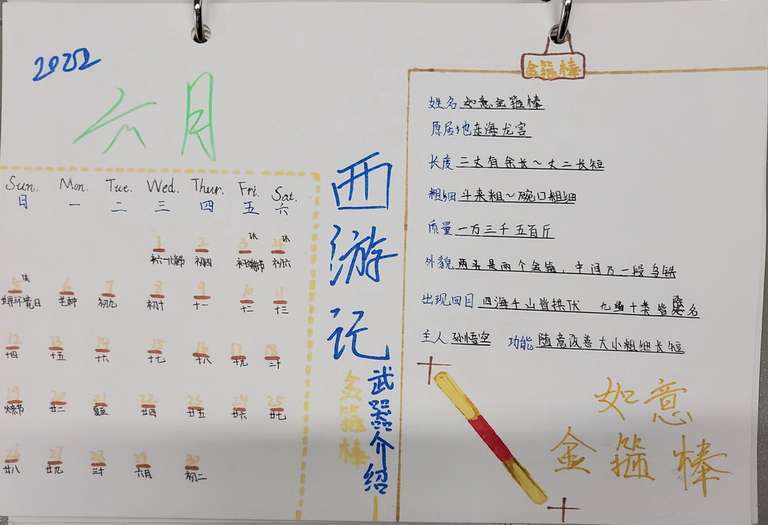 2022
六月
Sun. Mon. Tue. Wed. Thur. Fri. Sat.
日 一 二 三 四 五 六
1 2 3 休 4 休
六一儿童节 初四 端午节 初六
5 休 6 7 8 9 10 11
世界环境日 芒种 初九 初十 十一 十二 十三
12 13 14 15 16 17 18
十四 十五 十六 十七 十八 十九 二十
19 20 21 22 23 24 25
父亲节 廿二 夏至 廿四 廿五 廿六 廿七
26 27 28 29 30
廿八 廿九 三十 六月 初二
西游记
武器介绍
金箍棒
金箍棒
姓名 如意金箍棒
原居地 东海龙宫
长度 三丈有余长～丈二长短
粗细 斗来粗～碗口粗细
质量 一万三千五百斤
外貌 两头是两个金箍，中间乃一段乌铁
出现回目 四海千山皆拱伏 九幽十类皆除名
主人 孙悟空 功能 随意改变大小粗细长短
如意
金箍棒